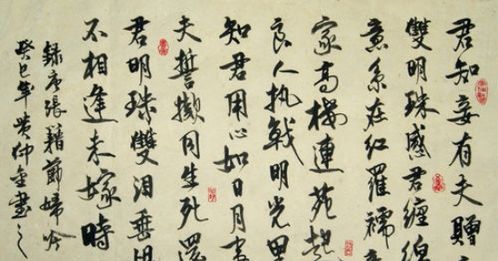 君知妾有夫贈
雙明珠感君纏綿
意系在紅羅襦
家高樓連苑起
良人執戟明光里
知君用心如日月事
夫誓擬同生死還
君明珠雙泪垂
不相逢未嫁時
錄唐張籍節婦吟
癸巳年黄仲金書之